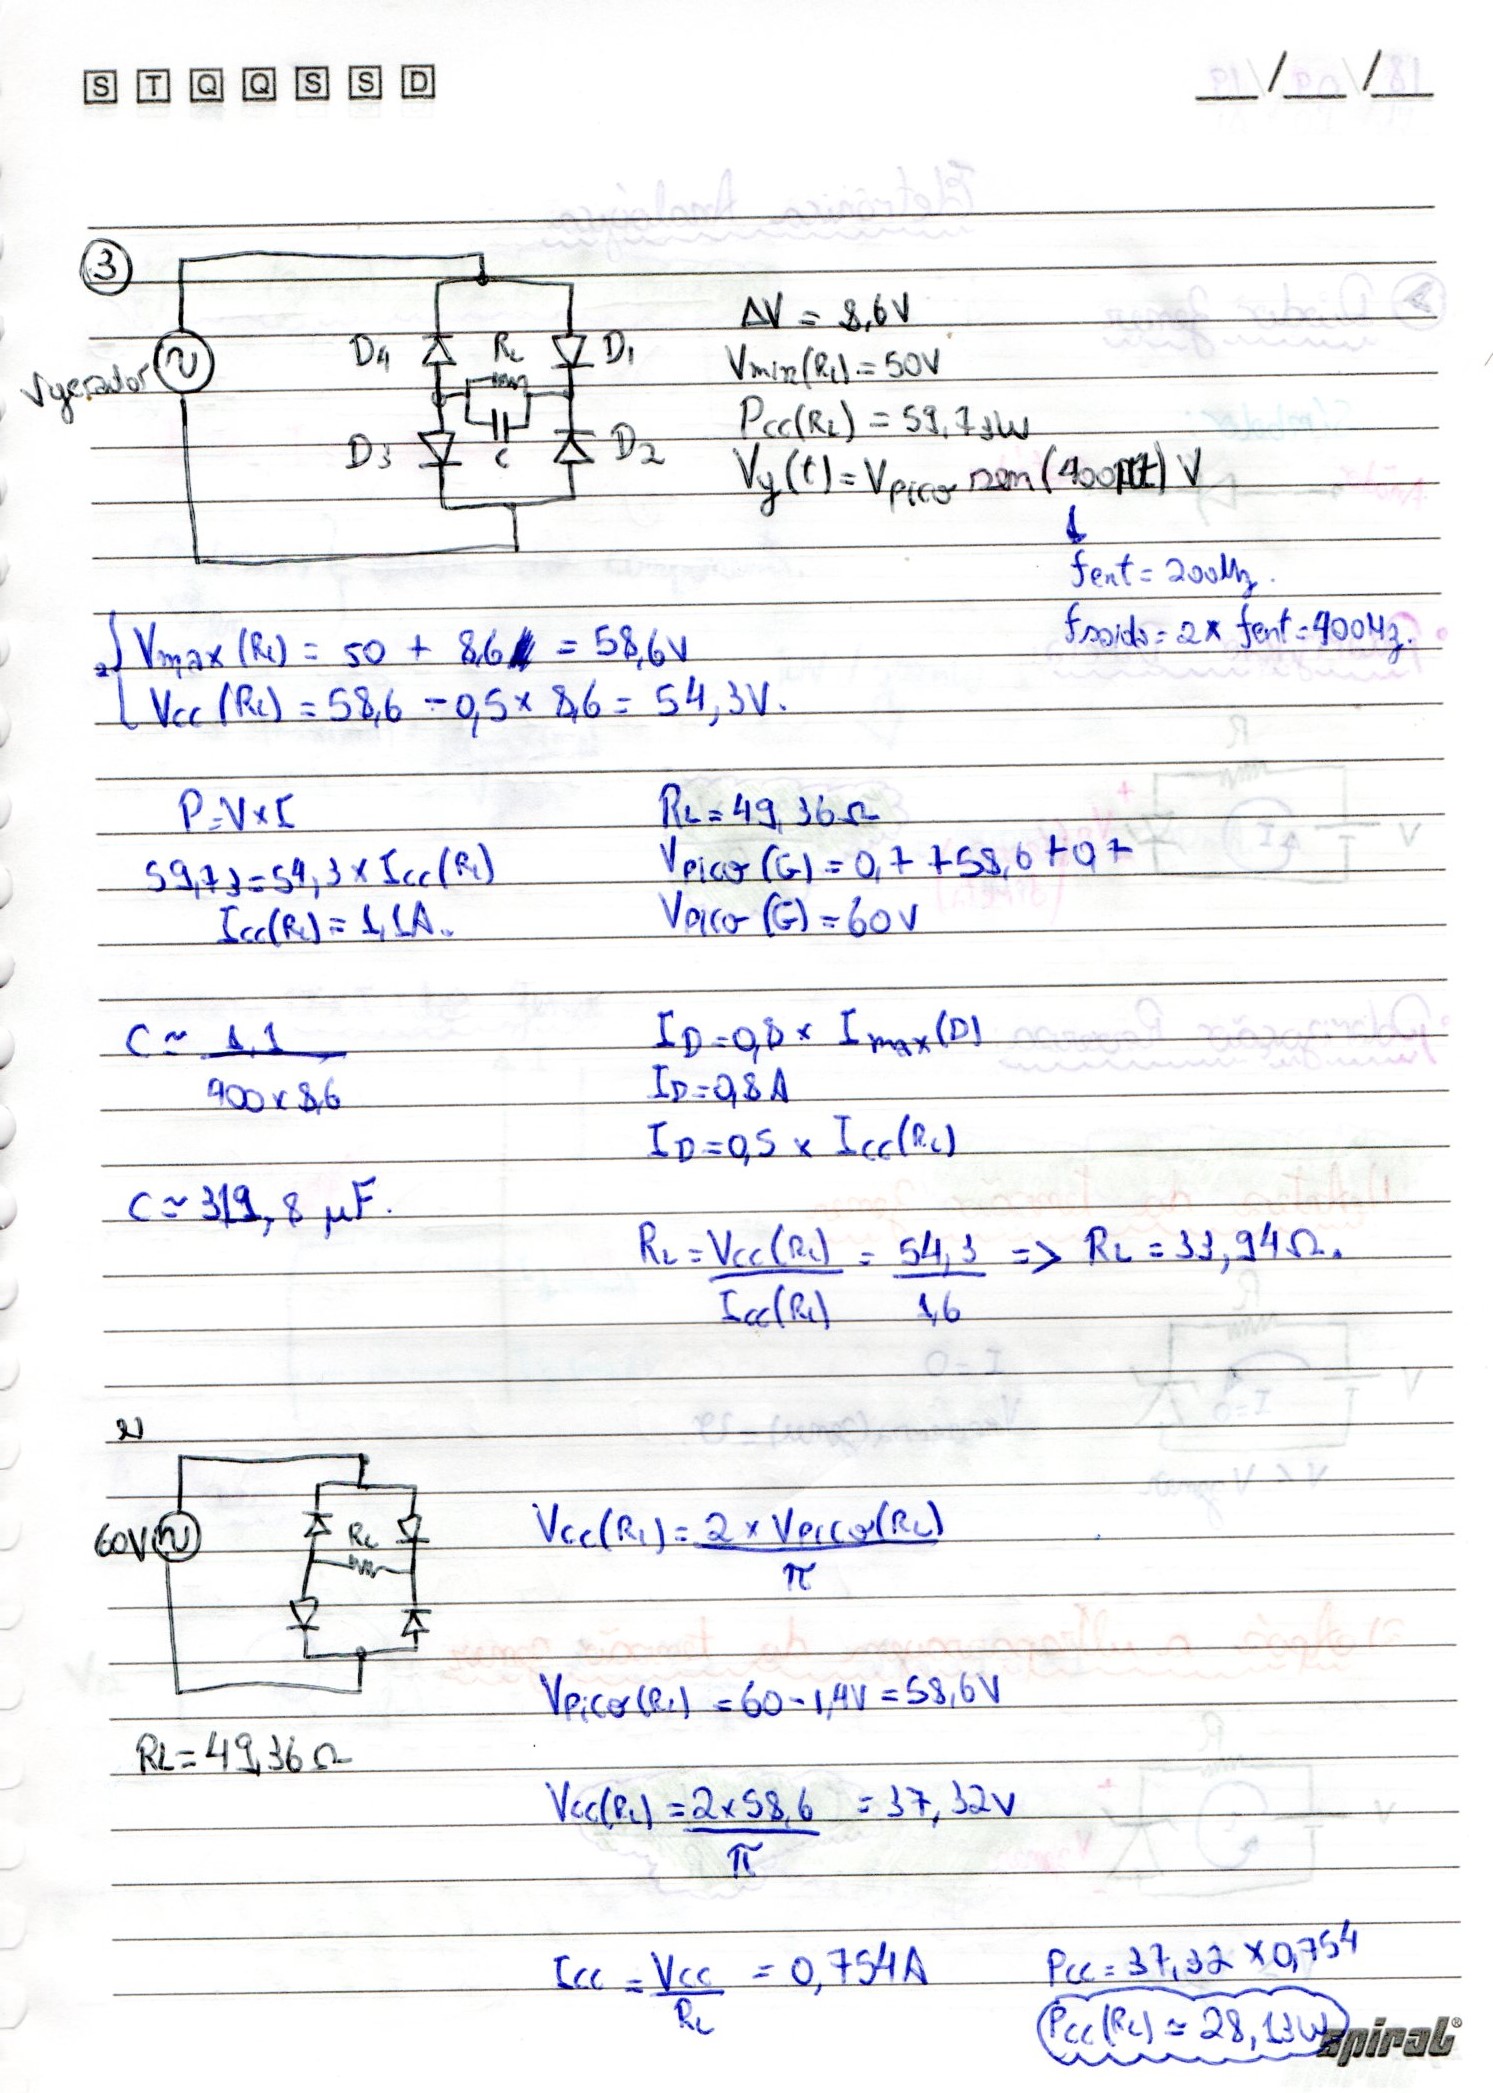 S T Q Q S S D
__/__/__
3
ΔV = 8,6V
D4 RL D1
Vgerador
Vmin(RL) = 50V
Pcc(RL) = 59,73W
D3 C D2
Vg(t) = Vpico sen(400πt) V
↓
fent = 200Hz.
fsaída = 2 x fent = 400Hz.
Vmax (RL) = 50 + 8,6 = 58,6V
Vcc (RL) = 58,6 - 0,5 x 8,6 = 54,3V.
P = V x I
59,73 = 54,3 x Icc(RL)
Icc(RL) = 1,1A.
RL = 49,36Ω
Vpico (G) = 0,7 + 58,6 + 0,7
Vpico (G) = 60V
C ≃ 1,1
400 x 8,6
C ≃ 319,8 μF.
ID = 0,8 x Imax(D)
ID = 0,8A
ID = 0,5 x Icc(RL)
RL = Vcc(RL) = 54,3 => RL = 33,94Ω.
Icc(RL) 1,6
60V RL
RL = 49,36Ω
Vcc(RL) = 2 x Vpico(RL)
π
Vpico(RL) = 60 - 1,4V = 58,6V
Vcc(RL) = 2 x 58,6 = 37,32V
π
Icc = Vcc = 0,754A
RL
Pcc = 37,32 x 0,754
Pcc(RL) ≃ 28,13W
spiral®